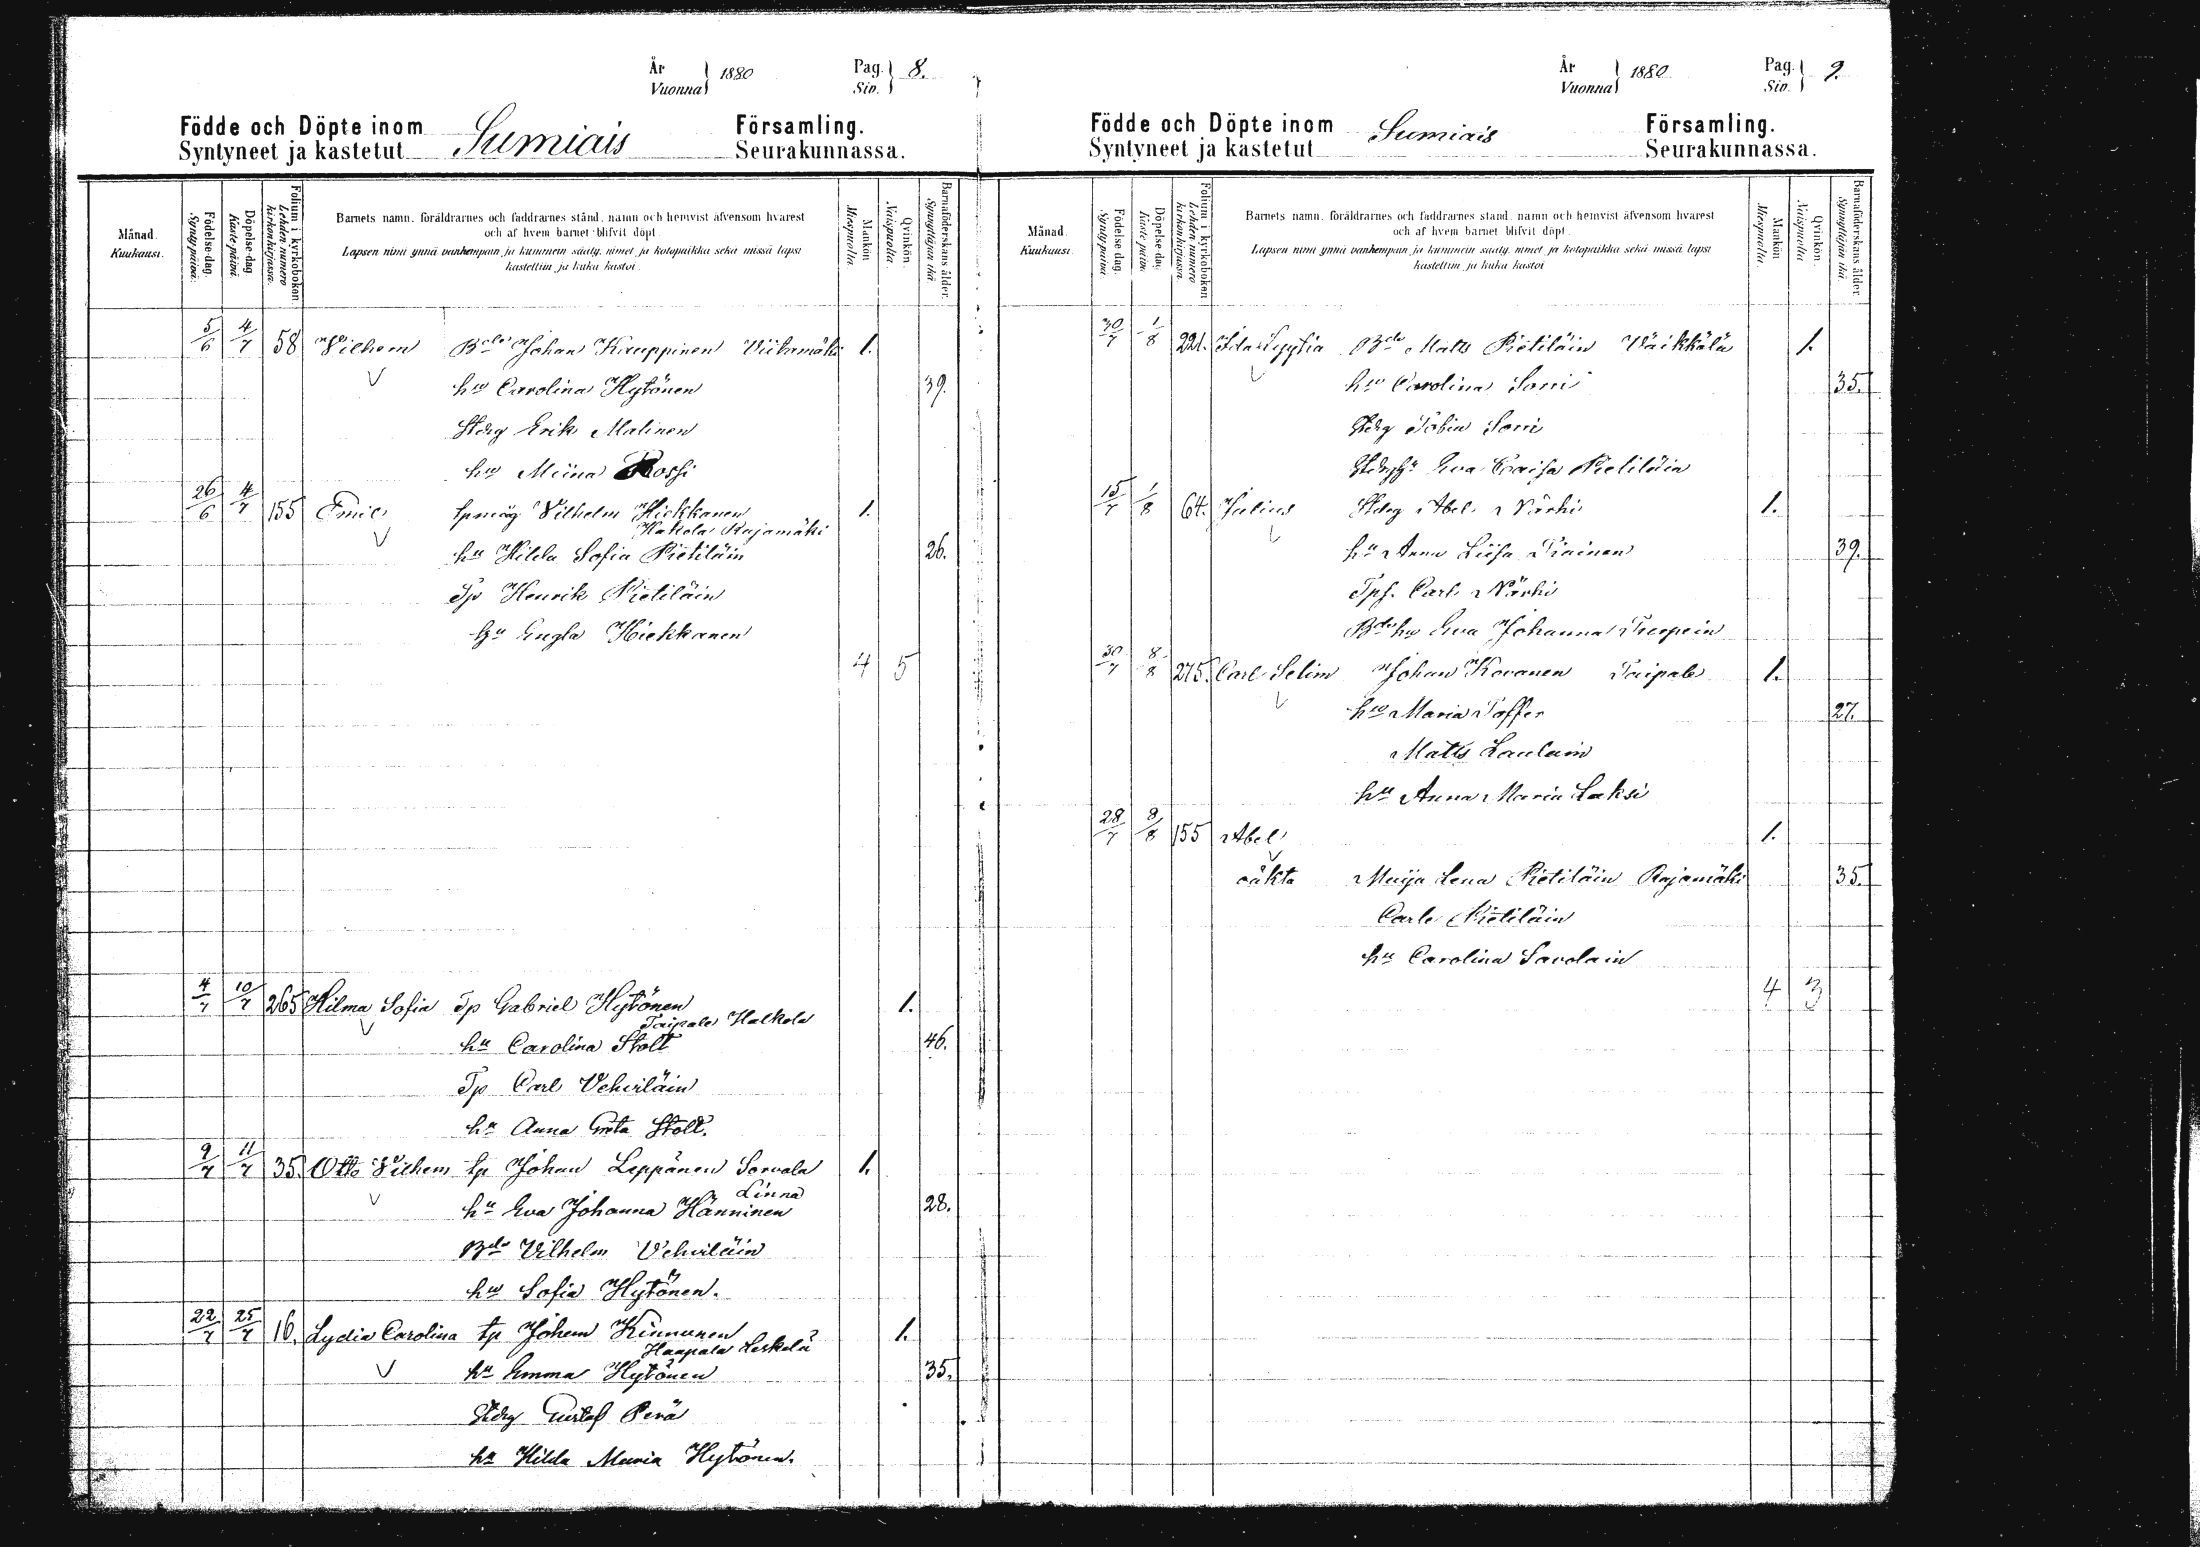 År
Vuonna
1880
Pag.
Siv.
8.
Födde och Döpte inom
Syntyneet ja kastetut
Sumiais
Församling.
Seurakunnassa.
Månad.
Kuukausi.
Födelse-dag.
Syntypäivä.
Döpelse-dag
Kaste-päivä.
Folium i kyrkoboken
Lehden numero
kirkonkirjassa.
Barnets namn, föräldrarnes och faddrarnes stånd, namn och hemvist äfvensom hvarest
och af hvem barnet blifvit döpt.
Lapsen nimi ynnä vanhempain ja kummein sääty, nimet ja kotopaikka sekä missä lapsi
kastettiin ja kuka kastoi.
Mankön.
Miespuolia.
Qvinkön.
Naispuolia.
Barnaföderskans ålder.
Synnyttäjän ikä.
5/6 4/7 58 Vilhem Bde Johan Kauppinen Viitamäki 1.
hu Carolina Hytönen 39.
Stdrg Erik Malinen
hu Miina Rossi
26/6 4/7 155 Emil spmåg Vilhelm Hiekkanen 1.
Hakola Rajamäki
hu Hilda Sofia Pietiläin 26.
Tp Henrik Pietiläin
hu Engla Hiekkanen
4 5
4/7 10/7 265 Hilma Sofia Tp Gabriel Hytönen 1.
Taipale Halkola
hu Carolina Stolt 46.
Tp Carl Vehviläin
hu Anna Greta Stolt.
9/7 11/7 35. Otto Vilhem tp Johan Leppänen Sorvala 1.
Linna
hu Eva Johanna Hänninen 28.
Bde Vilhelm Vehviläin
hu Sofia Hytönen.
22/7 25/7 16. Lydia Carolina tp Johan Kinnunen 1.
Haapala Leskelä
hu Emma Hytönen 35.
Stdrg Gustaf Perä
hu Hilda Maria Hytönen.
År
Vuonna
1880
Pag.
Siv.
9.
Födde och Döpte inom
Syntyneet ja kastetut
Sumiais
Församling.
Seurakunnassa.
Månad.
Kuukausi.
Födelse-dag.
Syntypäivä.
Döpelse-dag
Kaste-päivä.
Folium i kyrkoboken
Lehden numero
kirkonkirjassa.
Barnets namn, föräldrarnes och faddrarnes stånd, namn och hemvist äfvensom hvarest
och af hvem barnet blifvit döpt.
Lapsen nimi ynnä vanhempain ja kummein sääty, nimet ja kotopaikka sekä missä lapsi
kastettiin ja kuka kastoi
Mankön.
Miespuolia.
Qvinkön.
Naispuolia
Barnaföderskans ålder.
Synnyttäjän ikä.
30/7 1/8 221. Ida Bde Matts Pietiläin Väikkälä 1.
hu Carolina Sorri 35.
Stdrg Tobias Sorri
Eva Caisa Pietiläin
15/7 1/8 64. Julius Stdrg Abel Närhi 1.
hu Anna Liisa Piainen 39.
Tps. Carl Närhi
Bde hu Eva Johanna
30/7 8/8 275. Carl Selim Johan Kovanen Taipale 1.
hu Maria Toffer 27.
Matts Laulain
hu Anna Maria Laksi
28/7 8/8 155 Abel 1.
oäkta Maija Lena Pietiläin Rajamäki 35.
Carl Pietiläin
hu Carolina Savolain
4 3